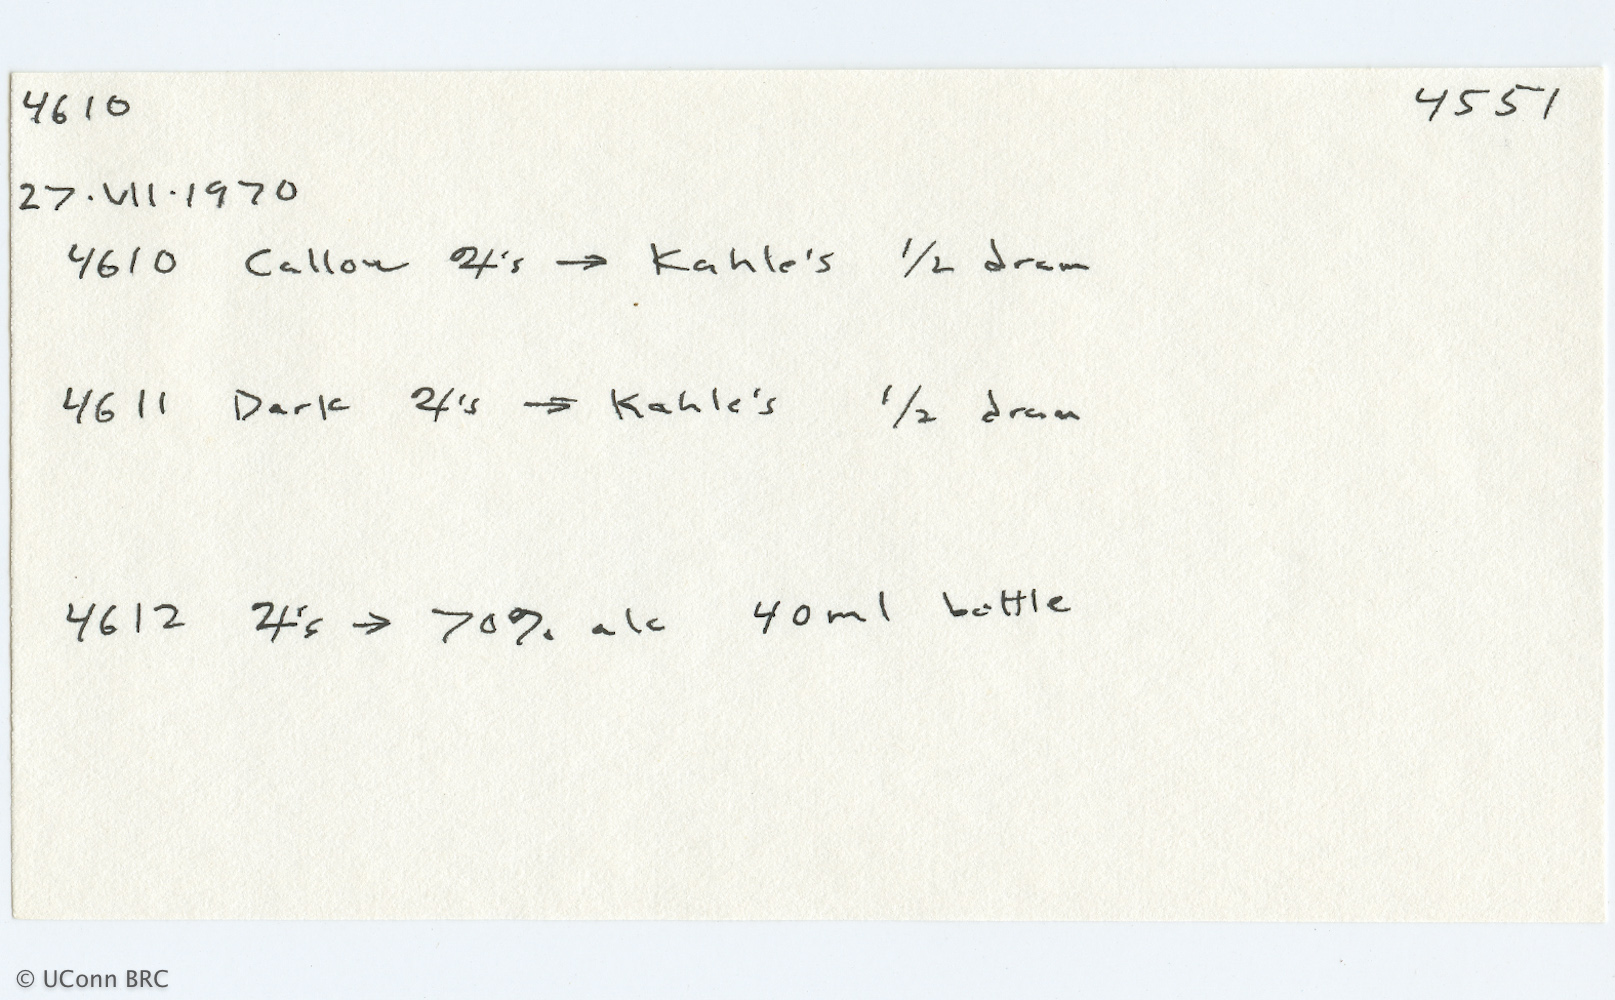 4610 4551
27.VII.1970
4610 Callow ♃'s → Kahle's 1/2 dram
4611 Dark ♃'s → Kahle's 1/2 dram
4612 ♃'s → 70% alc 40ml bottle
© UConn BRC